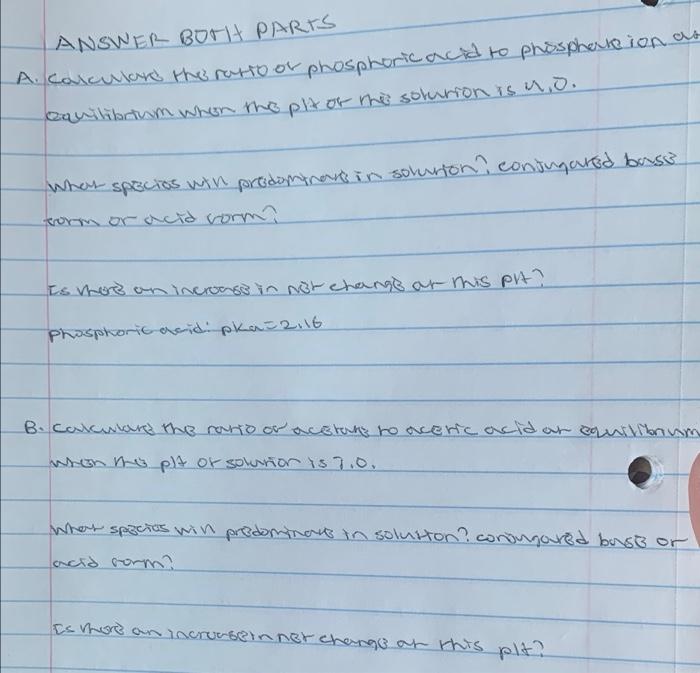 ANSWER BOTH PARTS
A. Calculate the ratio of phosphoric acid to phosphate ion at
equilibrium when the pH of the solution is 4.0.
What species will predominate in solution? conjugated base
form or acid form?
Is there an increase in net change at this pH?
phosphoric acid: pKa = 2.16
B. Calculate the ratio of acetate to acetic acid at equilibrium
when the pH of solution is 7.0.
What species will predominate in solution? conjugated base or
acid form?
Is there an increase in net change at this pH?